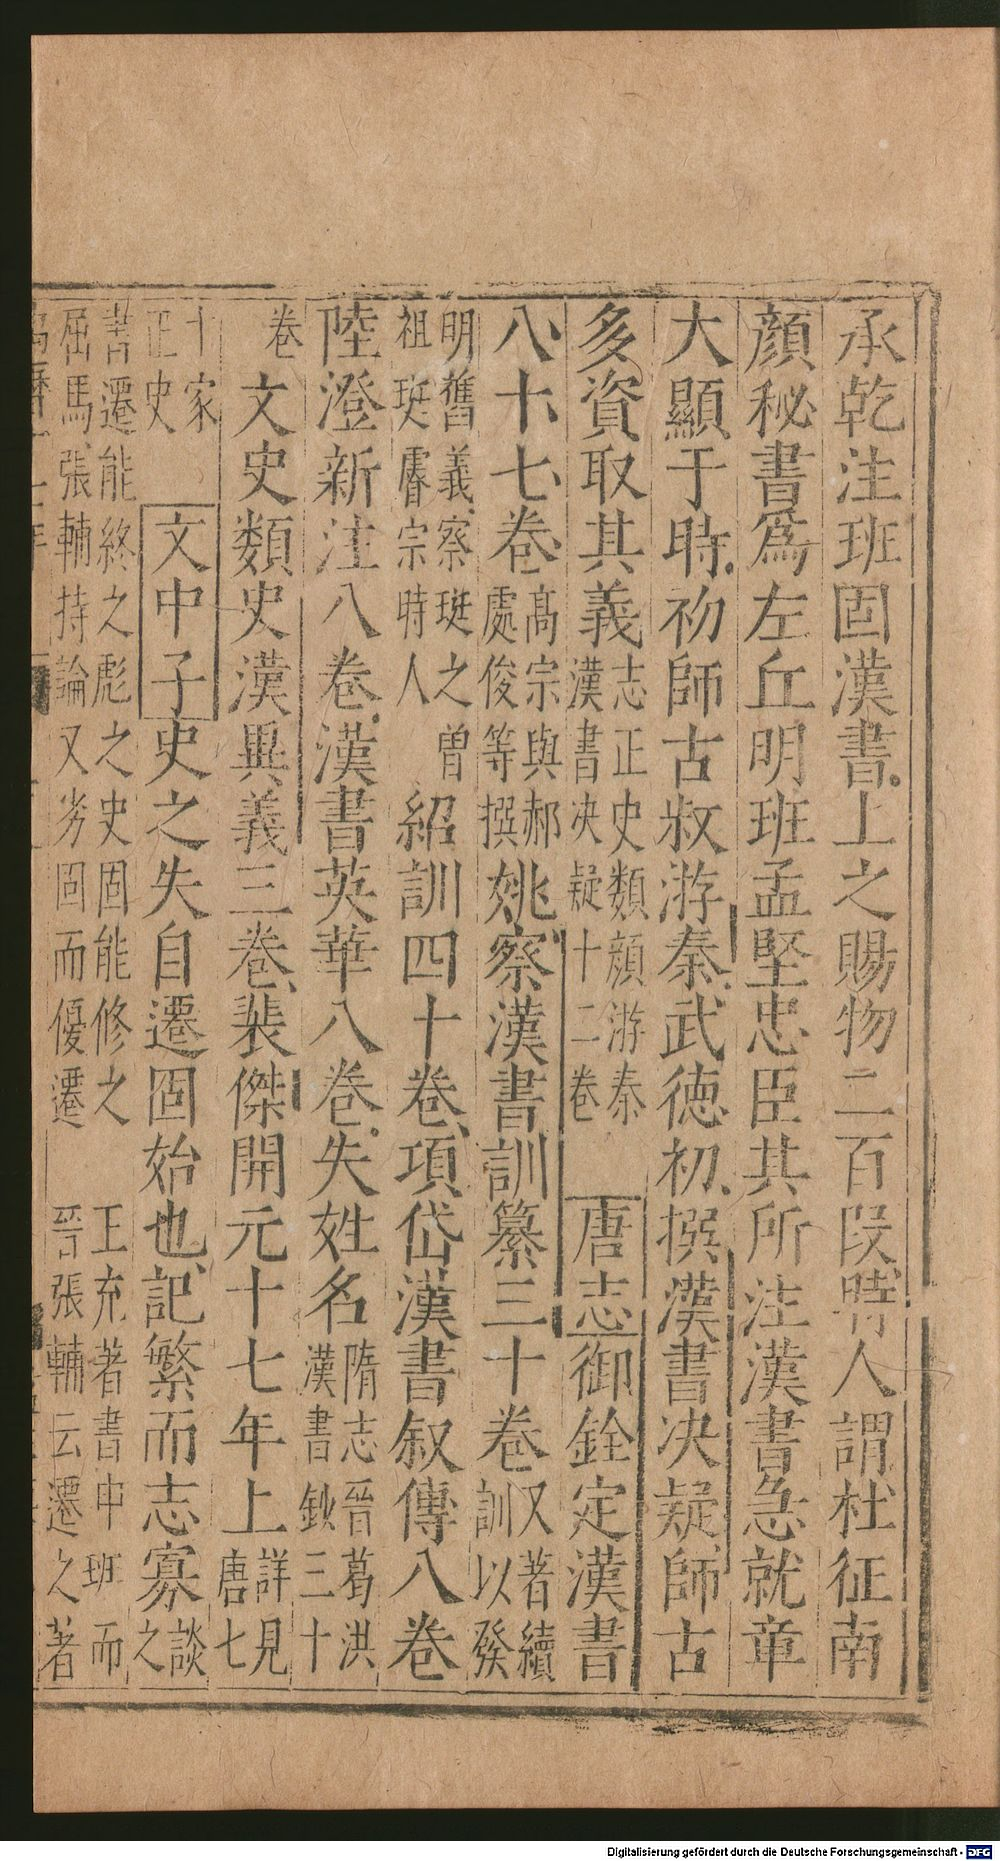 承乾注班固漢書上之賜物二百段時人謂杜征南
顏秘書爲左丘明班孟堅忠臣其所注漢書急就章
大顯于時初師古叔游秦武德初撰漢書决疑師古
多資取其義志正史類顔游秦漢書决疑十二卷唐志御銓定漢書
八十七卷高宗與郝處俊等撰姚察漢書訓纂三十卷又著續訓以發
明舊義察珽之曾祖珽睿宗時人紹訓四十卷項岱漢書叙傳八卷
陸澄新注八卷漢書英華八卷失姓名隋志晉葛洪漢書鈔三十
卷文史類史漢異義三卷裴傑開元十七年上詳見唐七
十家正史文中子史之失自遷固始也記繁而志寡談之
書遷能終之彪之史固能修之王充著書申班而
屈馬張輔持論又劣固而優遷晉張輔云遷之著
Digitalisierung gefördert durch die Deutsche Forschungsgemeinschaft - DFG